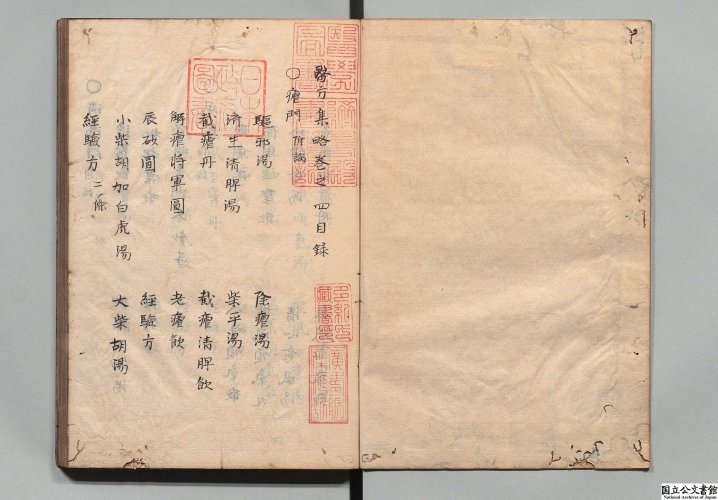 醫方集略巻之四目録
○瘧門 附論
驅邪湯 除瘧湯
濟生清脾湯 柴平湯
截瘧丹 截瘧清脾飲
解瘧將軍圓 老瘧飲
辰砂圓 經驗方
小柴胡加白虎湯 大柴胡湯
經驗方 二條
日本
多紀氏藏書印
国立公文書館
National Archives of Japan